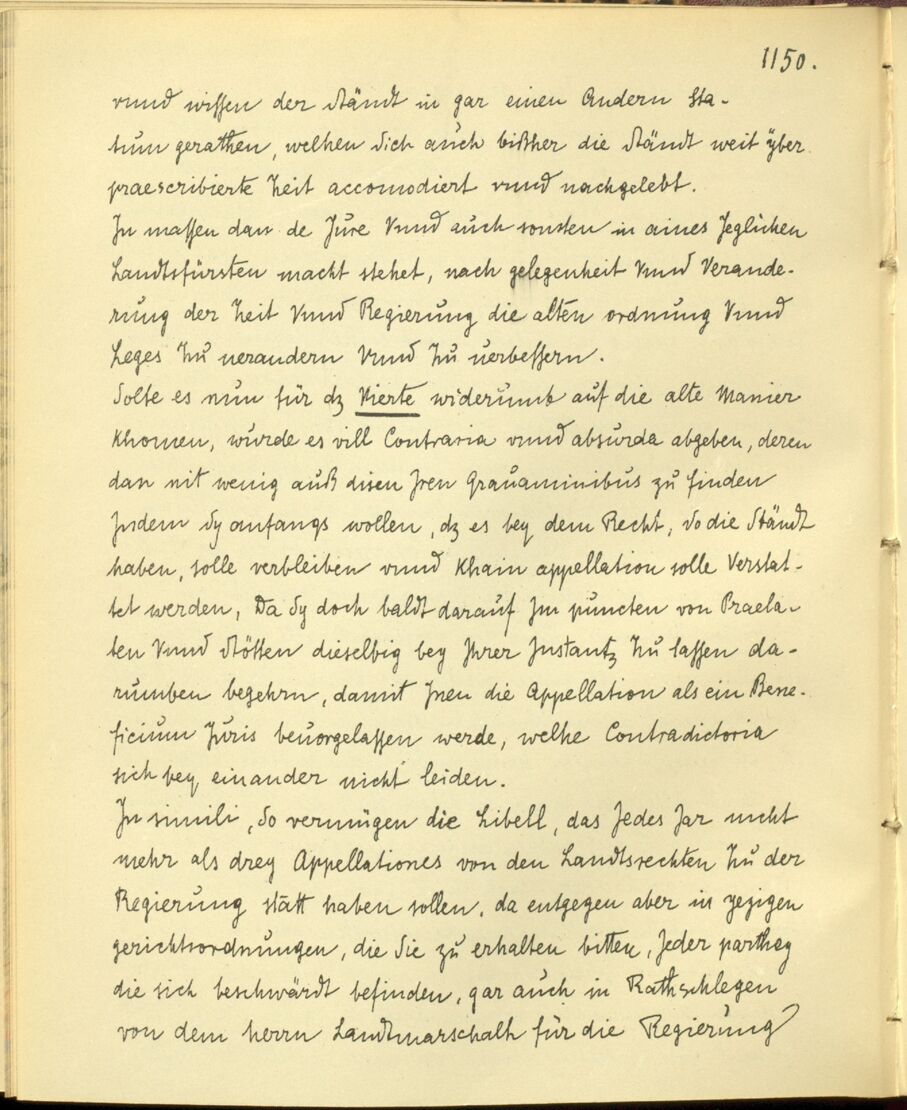 1150.
vnnd wissen der Ständt in gar einen Andern Sta-
tum gerathen, welhen Sich auch bißher die Ständt weit yber
praescribierte Zeit accomodiert vnnd nachgelebt.
In massen dan de Jure Vnnd auch sonsten in aines Jeglichen
Landtsfürsten macht stehet, nach gelegenheit Vnnd Verande-
rung der Zeit Vnnd Regierung die alten ordnung Vnnd
Leges Zu uerandern Vnnd Zu uerbessern.
Solte es nun für dz Vierte widerumb auf die alte Manier
Khomen, würde es vill Contraria vnnd absurda abgeben, deren
dan nit wenig auß disen Iren Grauaminibus zu finden
Indem Sy anfangs wollen, dz es bey dem Recht, So die Ständt
haben, solle verbleiben vnnd Khain appellation solle Verstat-
tet werden, Da Sy doch baldt darauf Im puncten von Praela-
ten Vnnd Stötten dieselbig bey Ihrer Instantz Zu lassen da-
rumben begehrn, damit Inen die Appellation als ein Bene-
ficium Juris beuorgelassen werde, welhe Contradictoria
sich bey einander nicht leiden.
In simili, So vermügen die Libell, das Jedes Jar nicht
mehr als drey Appellationes von den Landtsrechten Zu der
Regierung statt haben sollen, da entgegen aber in yezigen
gerichtsordnungen, die Sie zu erhalten bitten, Jeder parthey
die sich beschwärdt befinden, gar auch in Rathschlegen
von dem herrn Landtmarschalh für die Regierung